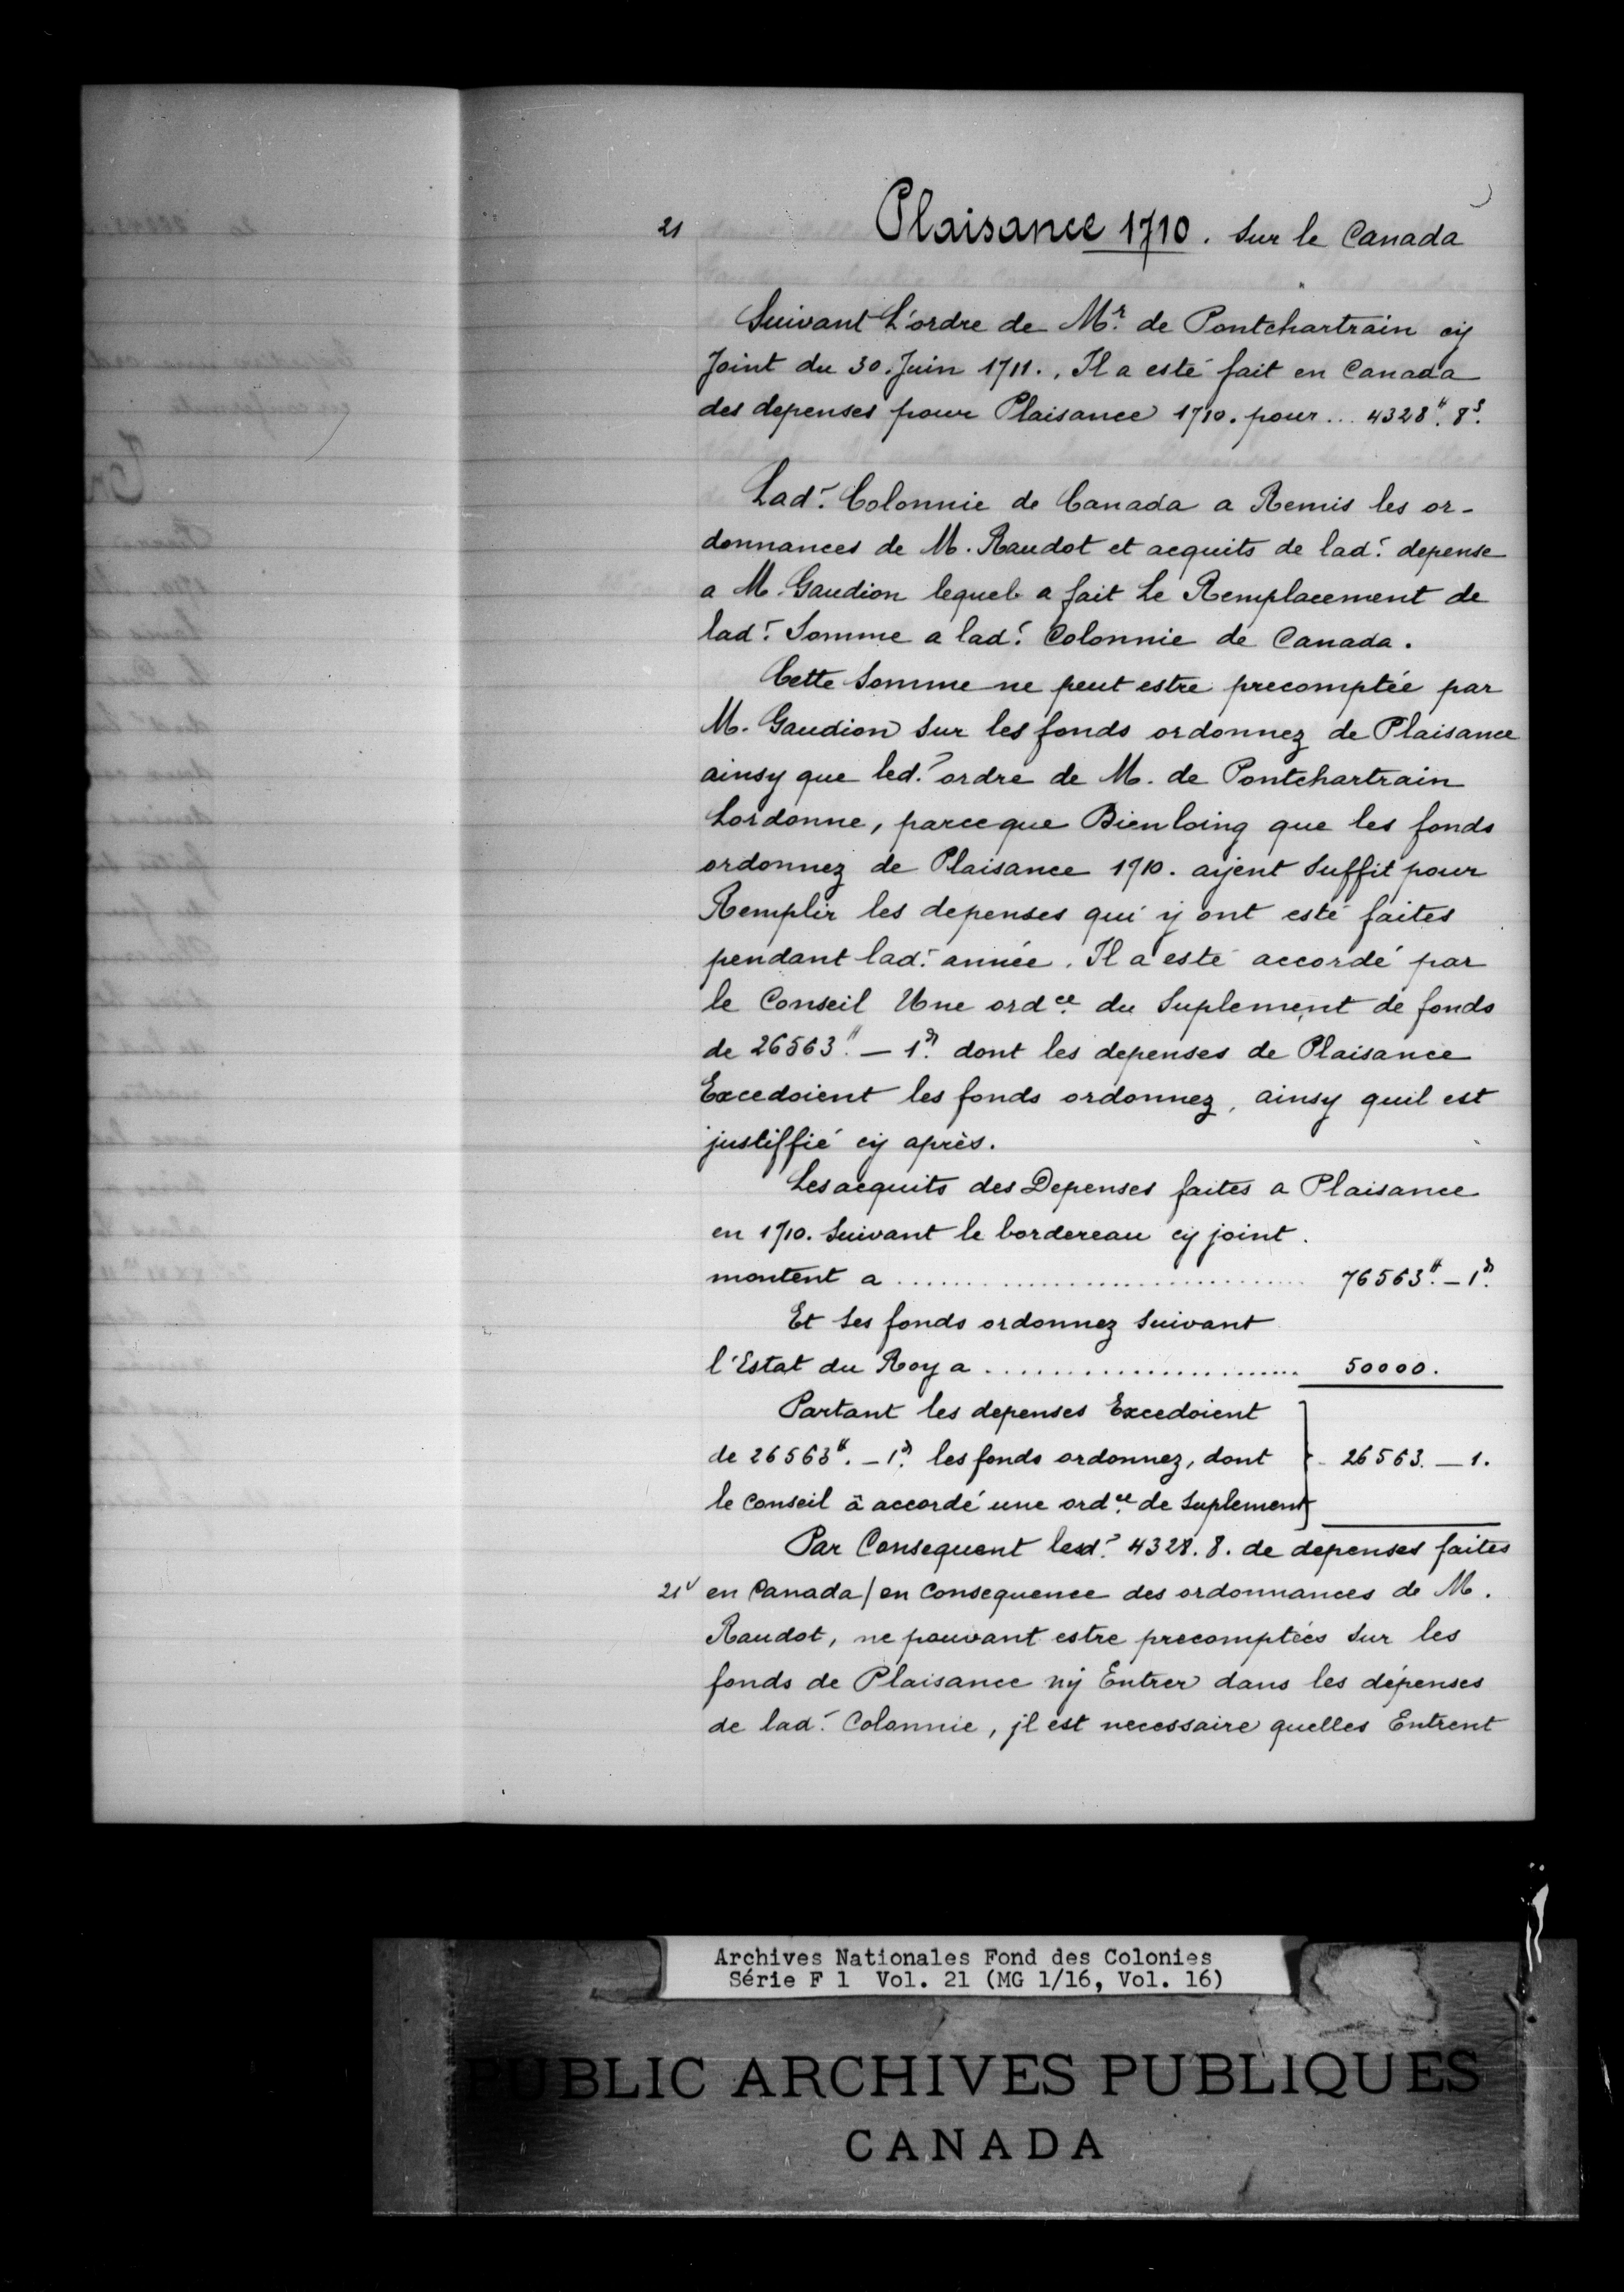 21 Plaisance 1710. Sur le Canada
Suivant L'ordre de Mr. de Pontchartrain cij
Joint du 30. Juin 1711. . Il a esté fait en Canada
des depenses pour Plaisance 1710. pour ... 4328ᴴ. 8s.
Lade. Colonnie de Canada a Remis les or-
donnances de M. Raudot et acquits de lade. depense
a M. Gaudion lequel a fait Le Remplacement de
lade. Somme a lade. Colonnie de Canada.
Cette Somme ne peut estre precomptée par
M. Gaudion Sur les fonds ordonnez de Plaisance
ainsy que led. ordre de M. de Pontchartrain
Lordonne, parceque Bienloing que les fonds
ordonnez de Plaisance 1710. aijent Suffit pour
Remplir les depenses qui ij ont esté faites
pendant lade. année. Il a esté accordé par
le Conseil Une ordce. du Suplement de fonds
de 26563ᴴ. — 1d. dont les depenses de Plaisance
Excedoient les fonds ordonnez, ainsy quil est
justiffié cij après.
Les acquits des Depenses faites a Plaisance
en 1710. Suivant le bordereau cy joint.
montent a .............................. 76563ᴴ. — 1d.
Et Les fonds ordonnez Suivant
l'Estat du Roy a ....................... 50000.
Partant les depenses Excedoient
de 26563ᴴ. — 1d. les fonds ordonnez, dont } 26563. — 1.
le Conseil à accordé une ordce. de Suplement
Par Consequent lesd. 4328. 8. de depenses faites
21v en Canada / en Consequence des ordonnances de M.
Raudot, ne pouvant estre precomptées Sur les
fonds de Plaisance nij Entrer dans les dépenses
de lade. Colonnie, jl est necessaire quelles Entrent
Archives Nationales Fond des Colonies
Série F 1 Vol. 21 (MG 1/16, Vol. 16)
PUBLIC ARCHIVES PUBLIQUES
CANADA